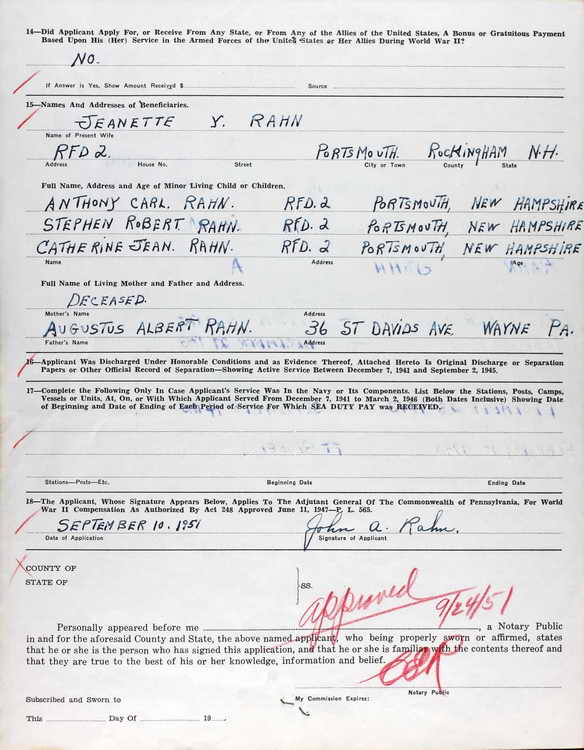 14—Did Applicant Apply For, or Receive From Any State, or From Any of the Allies of the United States, A Bonus or Gratuitous Payment
Based Upon His (Her) Service in the Armed Forces of the United States or Her Allies During World War II?
NO.
If Answer is Yes, Show Amount Received $ Source
15—Names And Addresses of Beneficiaries.
JEANETTE Y. RAHN
Name of Present Wife
RFD 2. PORTSMOUTH. ROCKINGHAM N.H.
Address House No. Street City or Town County State
Full Name, Address and Age of Minor Living Child or Children.
ANTHONY CARL. RAHN. RFD. 2 PORTSMOUTH, NEW HAMPSHIRE
STEPHEN ROBERT RAHN. RFD. 2 PORTSMOUTH, NEW HAMPSHIRE
CATHERINE JEAN. RAHN. RFD. 2 PORTSMOUTH, NEW HAMPSHIRE
Name Address Age
Full Name of Living Mother and Father and Address.
DECEASED.
Mother's Name Address
AUGUSTUS ALBERT RAHN. 36 ST DAVIDS AVE WAYNE PA.
Father's Name Address
16—Applicant Was Discharged Under Honorable Conditions and as Evidence Thereof, Attached Hereto Is Original Discharge or Separation
Papers or Other Official Record of Separation—Showing Active Service Between December 7, 1941 and September 2, 1945.
17—Complete the Following Only In Case Applicant's Service Was in the Navy or Its Components. List Below the Stations, Posts, Camps,
Vessels or Units, At, On, or With Which Applicant Served From December 7, 1941 to March 2, 1946 (Both Dates Inclusive) Showing Date
of Beginning and Date of Ending of Each Period of Service For Which SEA DUTY PAY was RECEIVED.
Stations—Posts—Etc. Beginning Date Ending Date
18—The Applicant, Whose Signature Appears Below, Applies To The Adjutant General Of The Commonwealth of Pennsylvania, For World
War II Compensation As Authorized By Act 248 Approved June 11, 1947—P. L. 565.
SEPTEMBER 10, 1951 John A. Rahn.
Date of Application Signature of Applicant
COUNTY OF
STATE OF
ss.
approved 9/24/51
Personally appeared before me , a Notary Public
in and for the aforesaid County and State, the above named applicant, who being properly sworn or affirmed, states
that he or she is the person who has signed this application, and that he or she is familiar with the contents thereof and
that they are true to the best of his or her knowledge, information and belief.
Notary Public
Subscribed and Sworn to My Commission Expires:
This Day Of 19